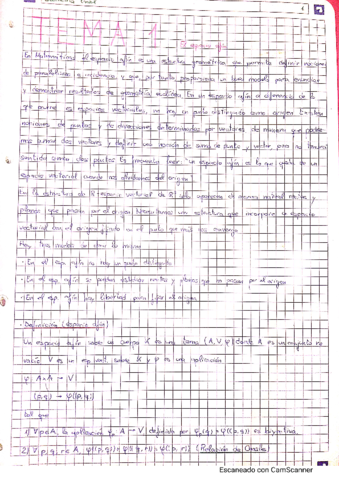 TEMA 1
El espacio afín
En Matemáticas el espacio afín es una estructura geométrica que permite definir nociones
de paralelismo e incidencia y que por tanto proporciona un buen modelo para enunciar
y demostrar resultados de geometría euclídea. En un espacio afín a diferencia de lo
que ocurre en espacios vectoriales, no hay un punto distinguido como origen. Existen
nociones de puntos y de direcciones determinadas por vectores de manera que podré-
mos sumar dos vectores y definir una noción de suma de punto y vector pero no tendrá
sentido sumar dos puntos. Es frecuente leer: un espacio afín es lo que queda de un
espacio vectorial cuando nos olvidamos del origen
En la estructura de espacio vectorial de R² sólo aparecen de manera natural rectas y
planos que pasan por el origen. Necesitamos una estructura que incorpore un espacio
vectorial con el origen fijado en el punto que más nos convenga
· En el esp. afín no hay un punto distinguido
· En el esp. afín se pueden estudiar rectas y planos que no pasan por el origen
· En el esp. afín hay libertad para fijar el origen
- Definición (espacio afín)
Un espacio afín sobre un cuerpo K es una terna (A, V, φ) donde A es un conjunto no
vacío V es un esp. vect. sobre K y φ es una aplicación
φ: A×A → V
(p,q) → φ((p,q))
tal que
1) ∀p∈A, la aplicación φp: A → V definida por φp(q)=φ((p,q)) es biyectiva
2) ∀p,q,r∈A, φ((p,q))+φ((q,r))=φ((p,r)) (Relación de Chasles)
Escaneado con CamScanner